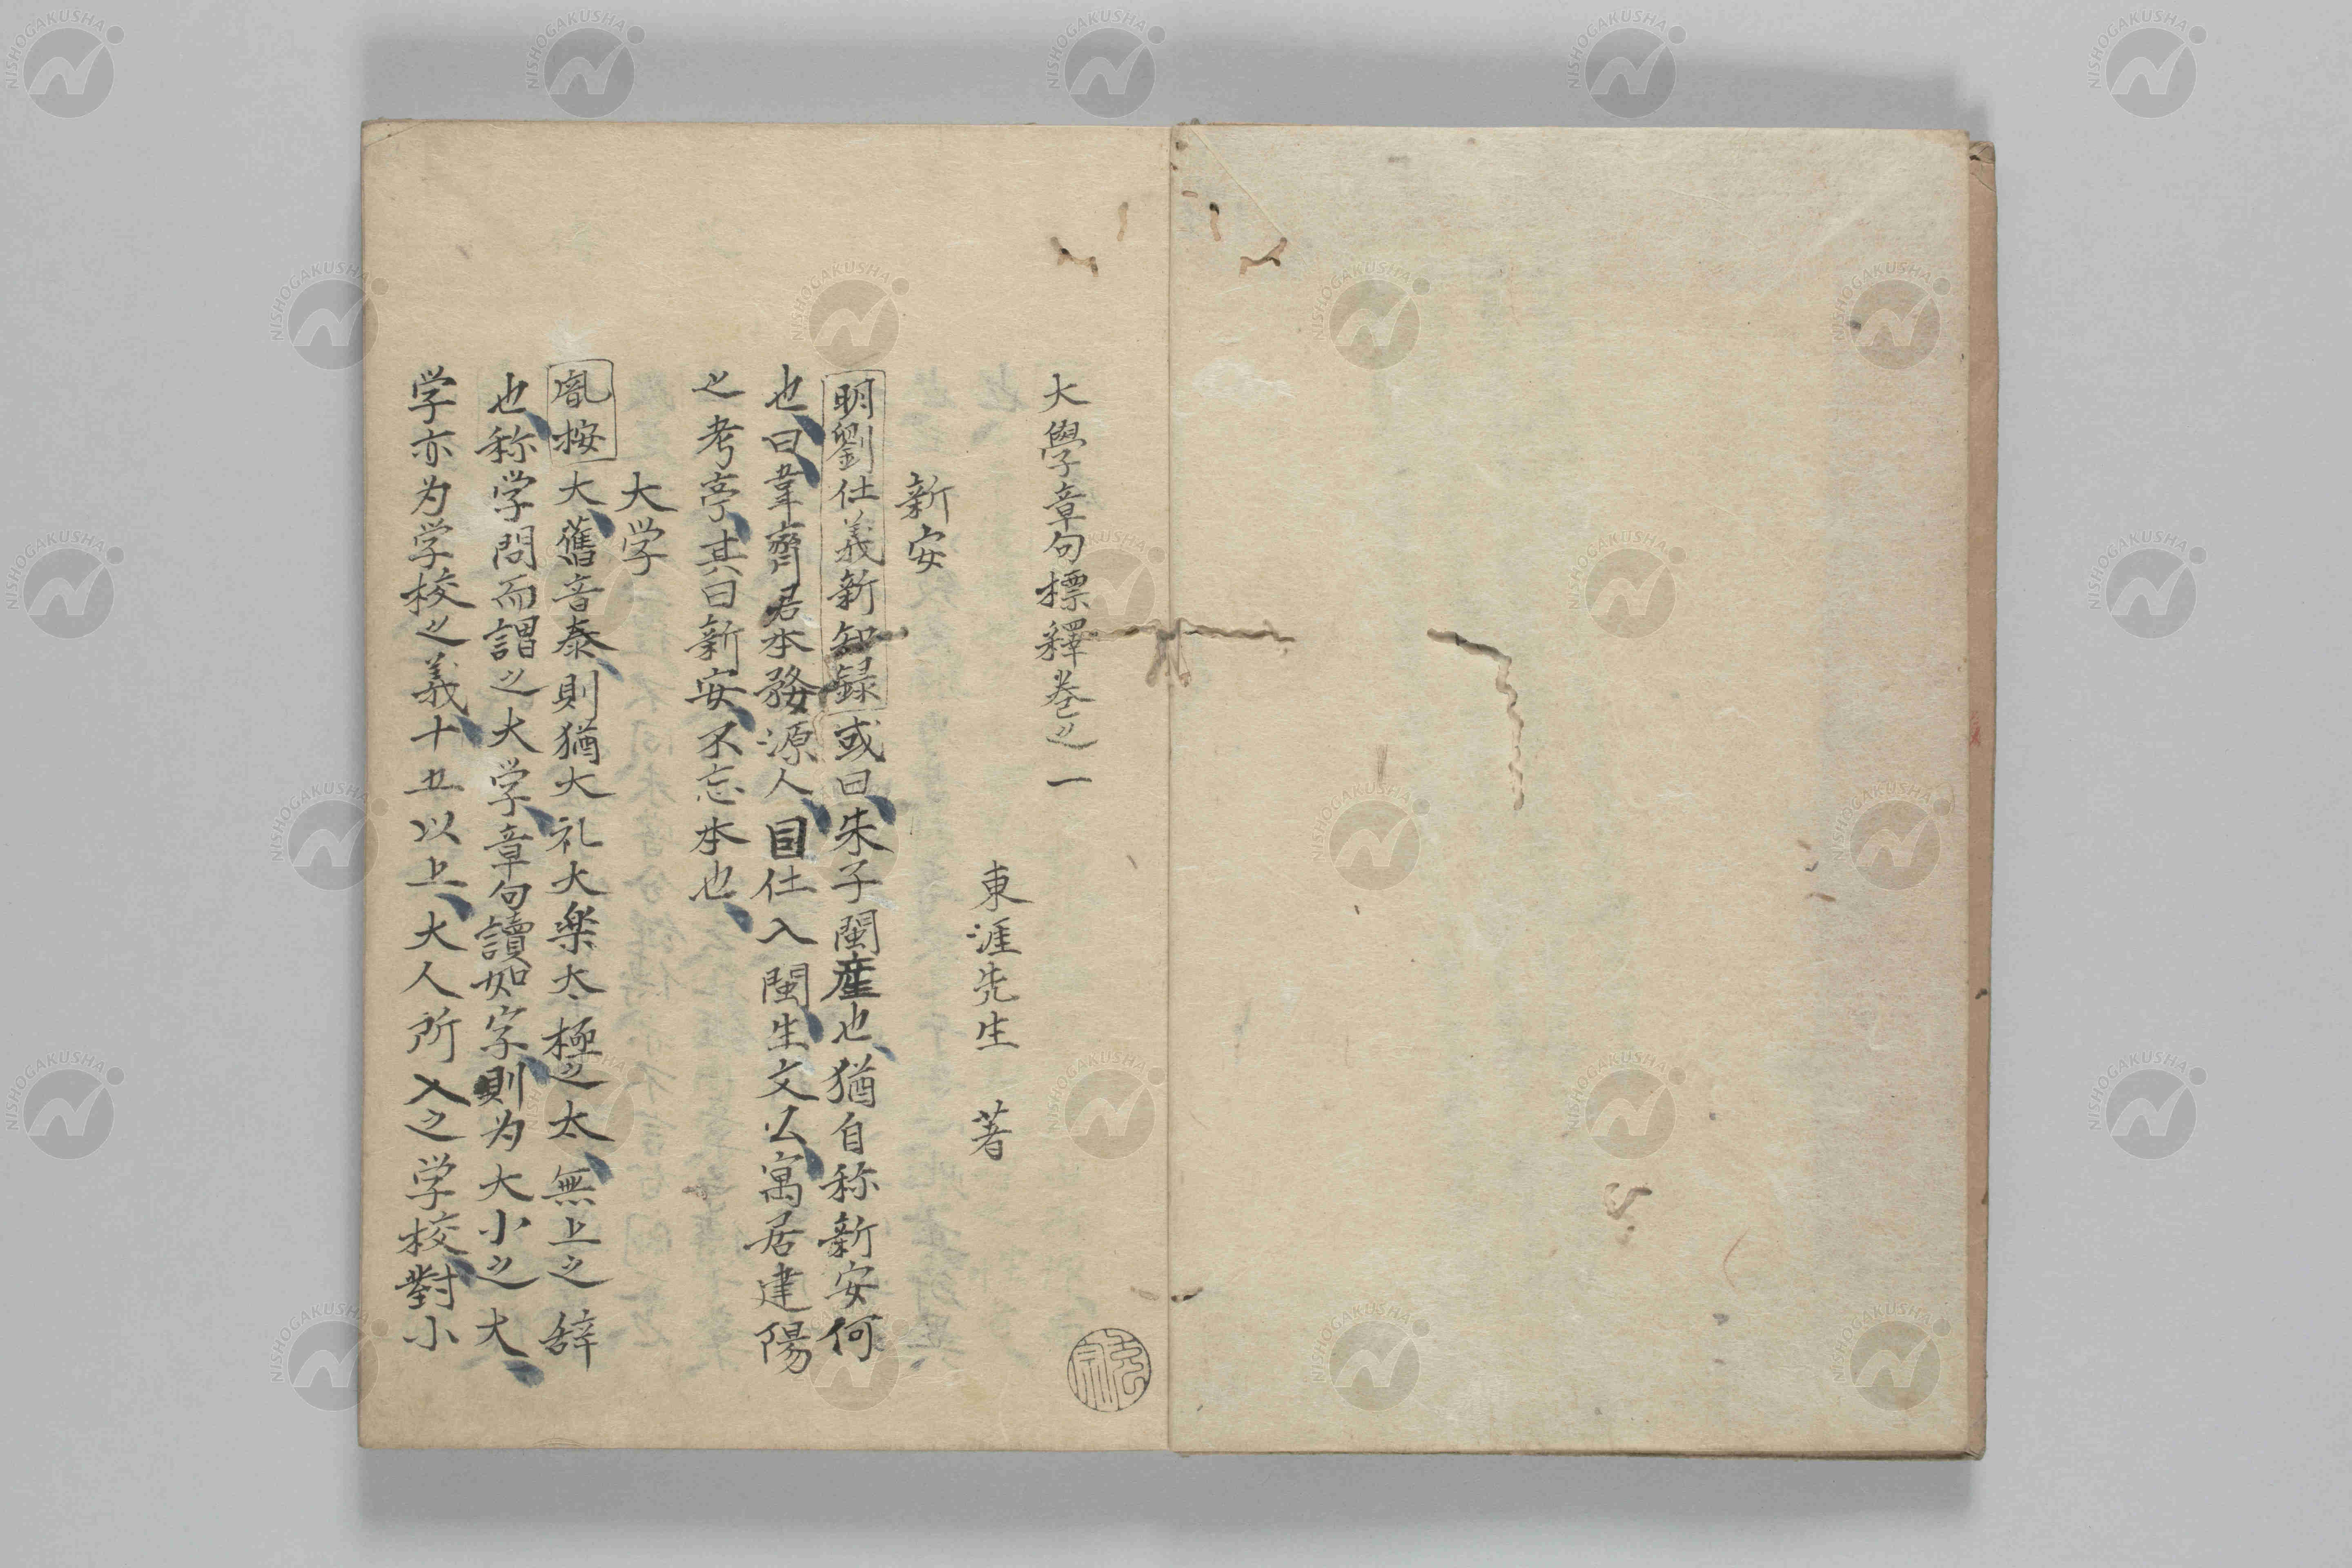 大學章句標釋巻之一
東涯先生 著
新安
明劉仕義新知録或曰朱子閩産也猶自称新安何
也曰韋齋君本務源人因仕入閩生文公寓居建陽
之考亭其曰新安不忘本也
大学
胤按大舊音泰則猶大礼大楽太極之太無上之辞
也称学問而謂之大学章句讀如字則为大小之大
学亦为学校之義十五以上大人所入之学校對小
NISHOGAKUSHA